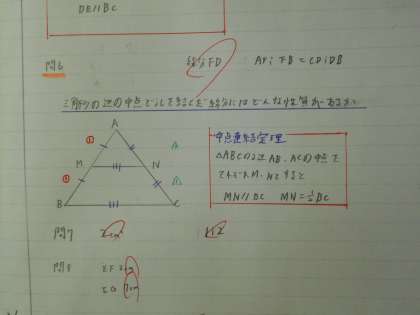 DE//BC
問6
線分FD
AF:FB=CD:DB
三角形の辺の中点どうしを結ぶ線分にはどんな性質があるか
A
①
M
N
①
B
C
中点連結定理
△ABCの2辺AB、ACの中点を
それぞれM、Nとすると
MN//BC MN=½BC
問7
問8
EF